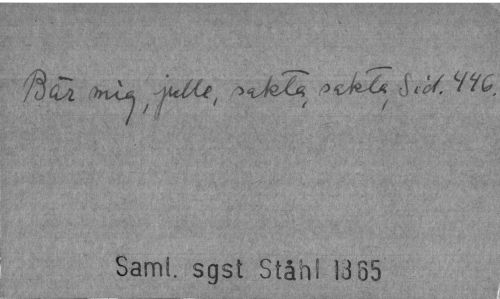 Bär mig, julle, sakta, sakta, Sid. 446.
Saml. sgst Ståhl 1865